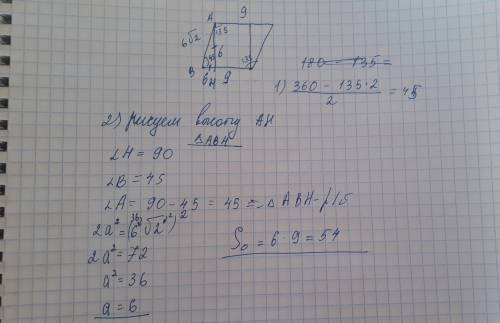 9
A
135
6√2
6
45
135
B 6 H 9
180 - 135 =
1) 360 - 135·2 / 2 = 45
2) рисуем высоту AH
△ABH
∠H = 90
∠B = 45
∠A = 90 - 45 = 45 => △ABH - р/б
2a² = (6√2)²
2a² = 72
a² = 36
a = 6
S = 6·9 = 54